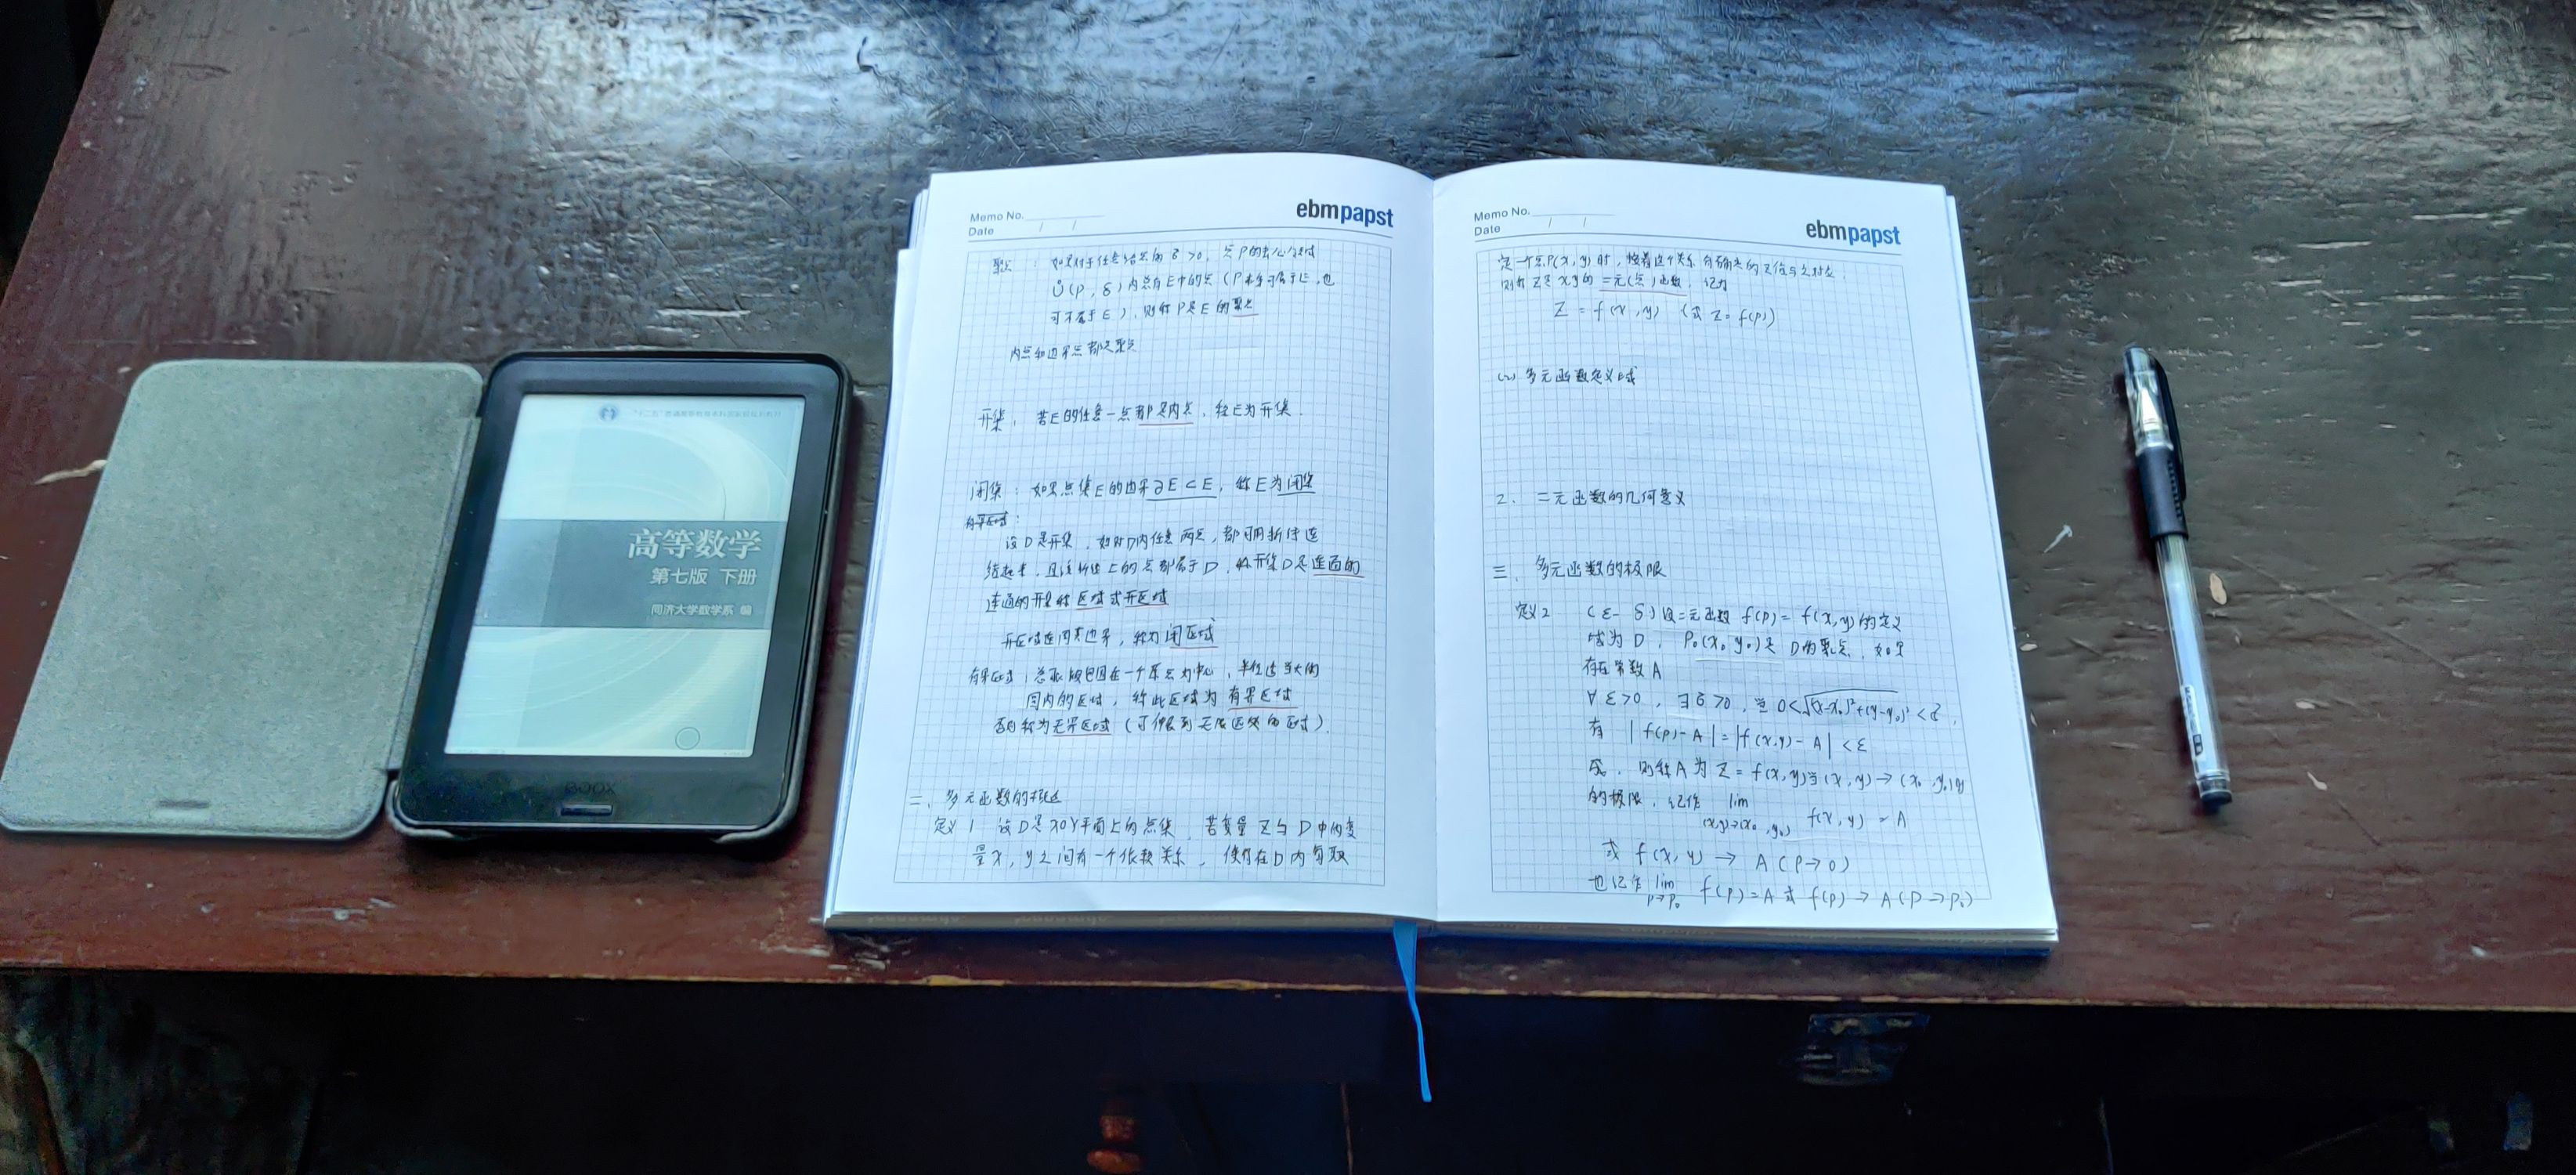 "十二五"普通高等教育本科国家级规划教材
高等数学
第七版 下册
同济大学数学系 编
BOOX
Memo No.
Date / /
ebmpapst
聚点：如果对于任意给定的 δ>0，点P的去心邻域
Ů(P,δ)内总有E中的点（P本身可属于E，也
可不属于E），则称P是E的聚点
内点和边界点都是聚点
开集：若E的任意一点都是内点，称E为开集.
闭集：如果点集E的边界∂E⊂E，称E为闭集
设D是开集，如对D内任意两点，都可用折线连
结起来，且该折线上的点都属于D，称开集D是连通的
连通的开集称区域或开区域
开区域连同其边界，称为闭区域
有界区域：总可被包围在一个原点为中心，半径适当大的
圆内的区域，称此区域为有界区域
否则称为无界区域（可伸展到无限远处的区域）.
二、多元函数的概念
定义1 设D是XOY平面上的点集，若变量Z与D中的变
量x，y之间有一个依赖关系，使得在D内每取
Memo No.
Date / /
ebmpapst
定一个点P(x,y)时，按着这个关系有确定的Z值与之对应
则称Z是xy的二元(点)函数，记为
Z = f(x,y) (或 Z=f(p))
(2) 多元函数定义域
2. 二元函数的几何意义
三、多元函数的极限
定义2 (ε-δ)设二元函数 f(p)= f(x,y)的定义
域为D，P₀(x₀,y₀)是D的聚点，如果
存在常数A
∀ε>0，∃δ>0，当 0<√(x-x₀)²+(y-y₀)² <δ，
有 |f(p)-A|=|f(x,y)-A|<ε
则称A为 Z=f(x,y)当(x,y)→(x₀,y₀)时
的极限，记作 lim f(x,y) = A
(x,y)→(x₀,y₀)
或 f(x,y) → A (ρ→0)
也记作 lim f(p)=A 或 f(p) → A(P→P₀)
P→P₀